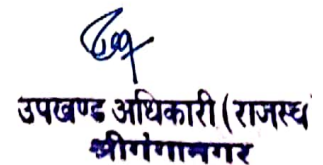 उपखण्ड अधिकारी (राजस्व
श्रीगंगानगर